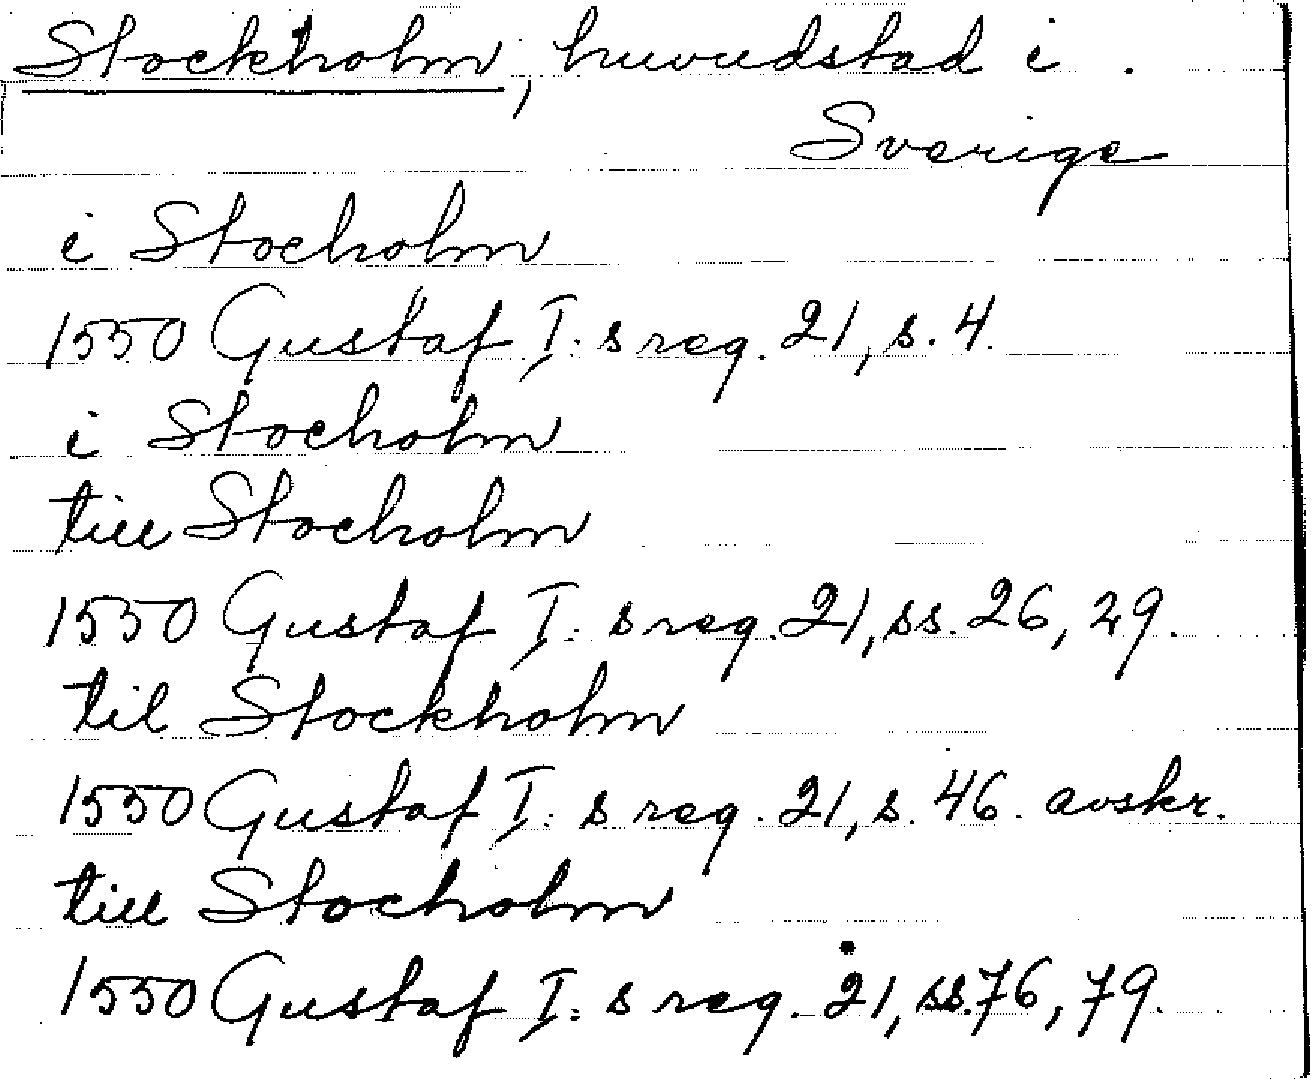 Stockholm, huvudstad i
Sverige
i Stocholm
1550 Gustaf I:s reg. 21, s. 4.
i Stocholm
till Stocholm
1550 Gustaf I:s reg. 21, ss. 26, 29.
til Stockholm
1550 Gustaf I:s reg. 21, s. 46. avskr.
till Stocholm
1550 Gustaf I:s reg. 21, ss. 76, 79.